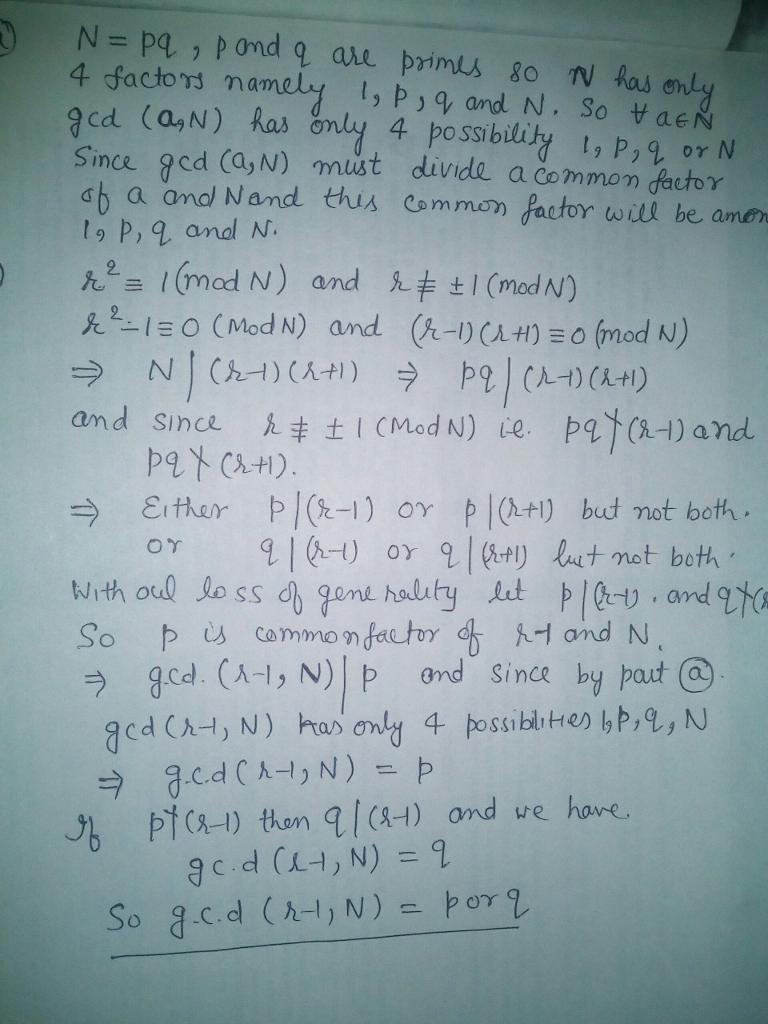 N = pq , p and q are primes so N has only
4 factors namely 1, p, q and N. So ∀ a∈N
gcd (a,N) has only 4 possibility 1, p, q or N
Since gcd (a,N) must divide a common factor
of a and N and this common factor will be amon
1, p, q and N.
r² ≡ 1 (mod N) and r ≢ ±1 (mod N)
r²-1 ≡ 0 (Mod N) and (r-1)(r+1) ≡ 0 (mod N)
⇒ N | (r-1)(r+1) ⇒ pq | (r-1)(r+1)
and since r ≢ ±1 (Mod N) i.e. pq ∤ (r-1) and
pq ∤ (r+1).
⇒ Either p | (r-1) or p | (r+1) but not both.
or q | (r-1) or q | (r+1) but not both.
With out loss of generality let p | (r-1). and q ∤ (r
So p is common factor of r-1 and N.
⇒ g.c.d. (r-1, N) | p and since by part ⓐ.
gcd (r-1, N) has only 4 possibilities 1, p, q, N
⇒ g.c.d (r-1, N) = p
If p ∤ (r-1) then q | (r-1) and we have.
gc.d (r-1, N) = q
So g.c.d (r-1, N) = p or q